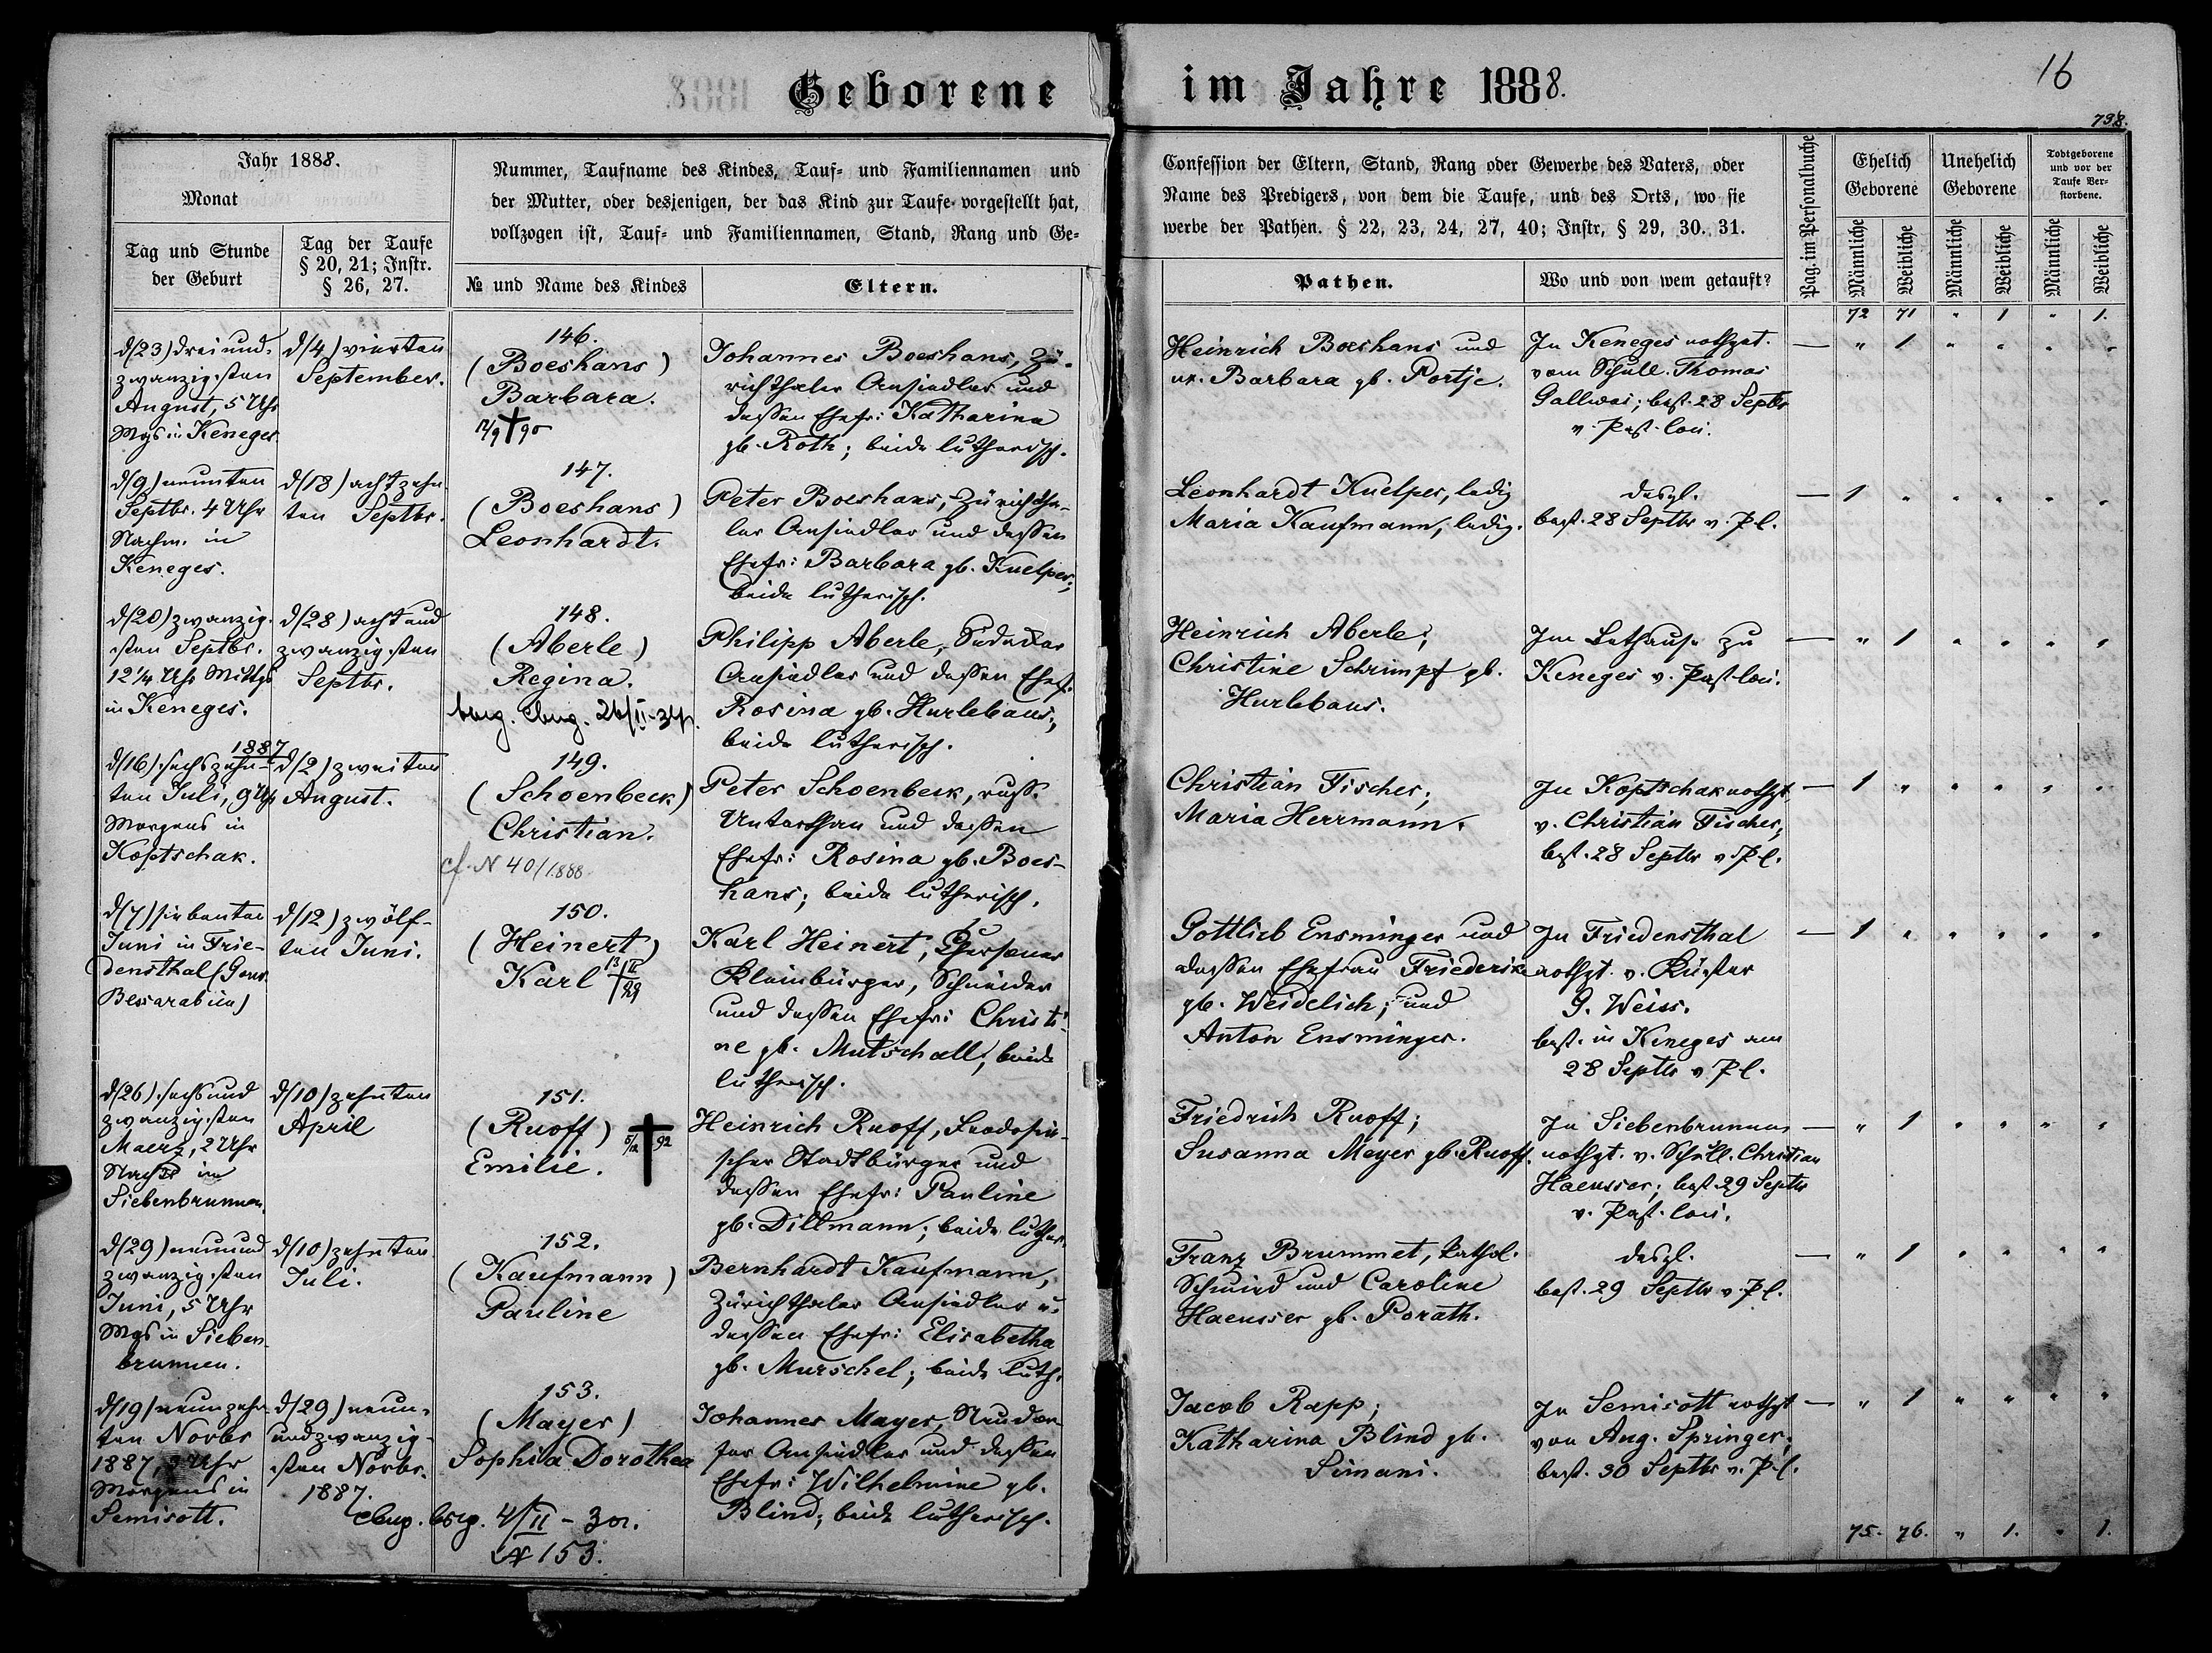 Geborene im Jahre 1888.
16
738.
Jahr 1888.
Monat
Tag und Stunde
der Geburt
Tag der Taufe
§ 20, 21; Instr.
§ 26, 27.
Nummer, Taufname des Kindes, Tauf- und Familiennamen und
der Mutter, oder desjenigen, der das Kind zur Taufe vorgestellt hat,
vollzogen ist, Tauf- und Familiennamen, Stand, Rang und Ge-
№ und Name des Kindes
Eltern.
Confession der Eltern, Stand, Rang oder Gewerbe des Vaters, oder
Name des Predigers, von dem die Taufe, und des Orts, wo sie
werbe der Pathen. § 22, 23, 24, 27, 40; Instr, § 29, 30. 31.
Pathen.
Wo und von wem getauft?
Pag. im Personalbuche
Ehelich
Geborene
Unehelich
Geborene
Todtgeborene
und vor der
Taufe Ver-
storbene.
Männliche
Weibliche
Männliche
Weibliche
Männliche
Weibliche
72 71 " 1 " 1.
d/23) drei und-
zwanzigsten
August, 5 Uhr
Mgs in Keneges
d/4) vierten
September.
146.
(Boeshans)
Barbara.
12/9 † 90
Johannes Boeshans, Zü-
richthaler Ansiedler und
dessen Ehefr: Katharina
gb. Roth; beide lutherisch.
Heinrich Boeshans und
Barbara gb. Portje.
In Keneges nothgt.
vom Schull. Thomas
Gallwas; best. 28 Septbr
v. Past. loci.
— " 1 " " " "
d/9) neunten
Septbr. 4 Uhr
Nachm. in
Keneges.
d/18) achtzehn-
ten Septbr.
147.
(Boeshans)
Leonhardt.
Peter Boeshans, Züricht­ha-
ler Ansiedler und dessen
Ehefr: Barbara gb. Kuelper;
beide lutherisch.
Leonhardt Kuelper, ledig
Maria Kaufmann, ledig.
desgl.
best. 28 Septbr v. P. l.
— 1 " " " " "
d/20) zwanzig-
sten Septbr.
12¼ Uhr Mittgs
in Keneges.
d/28) acht und
zwanzigsten
Septbr.
148.
(Aberle)
Regina.
Philipp Aberle,
Ansiedler und dessen Ehefr.
Rosina gb. Hurlebaus;
beide lutherisch.
Heinrich Aberle;
Christine Schrimpf gb.
Hurlebaus.
Im Bethause zu
Keneges v. Past. loci.
— " 1 " " " "
1887
d/16) sechszehn-
ten Juli, 9 Uhr
Morgens in
Koptschak.
d/2) zweiten
August.
149.
(Schoenbeck)
Christian.
cf. N 40/1888
Peter Schoenbeck, russ.
Unterthan und dessen
Ehefr: Rosina gb. Boes-
hans; beide lutherisch.
Christian Fischer;
Maria Herrmann.
In Koptschak nothgt.
v. Christian Fischer,
best. 28 Septbr v. P. l.
— 1 " " " " "
d/7) siebenten
Juni in Frie-
densthal (Gouv.
Bessarabien)
d/12) zwölf-
ten Juni.
150.
(Heinert)
Karl
Karl Heinert,
Kleinbürger, Schneider
und dessen Ehefr: Christi-
ne gb. Mutschall; beide
lutherisch.
Gottlieb Ensminger und
dessen Ehefrau Friederike
gb. Weidelich; und
Anton Ensminger.
In Friedensthal
nothgt. v. Küster
G. Weiss.
best. in Keneges am
28 Septbr v. P. l.
— 1 " " " " "
d/26) sechsund
zwanzigsten
Maerz, 2 Uhr
Nachts in
Siebenbrunnen.
d/10) zehnten
April
151.
(Ruoff)
Emilie.
5/12 † 92
Heinrich Ruoff, Feodosii-
scher Stadtbürger und
dessen Ehefr: Pauline
gb. Dillmann; beide luther.
Friedrich Ruoff;
Susanna Meyer gb. Ruoff.
In Siebenbrunnen
nothgt. v. Schull. Christian
Haeusser; best. 29 Septbr
v. Past. loci.
— " 1 " " " "
d/29) neunund
zwanzigsten
Juni, 5 Uhr
Mgs in Sieben-
brunnen.
d/10) zehnten
Juli.
152.
(Kaufmann)
Pauline
Bernhardt Kaufmann,
Zürichthaler Ansiedler u.
dessen Ehefr: Elisabetha
gb. Murschel; beide luth.
Franz Brummet, kathol.
Schmied und Caroline
Haeusser gb. Porath.
desgl.
best. 29 Septbr v. P. l.
— " 1 " " " "
d/19) neunzehn-
ten Novbr
1887, Uhr
Morgens in
Semisott.
d/29) neun-
undzwanzig-
sten Novbr.
1887.
153.
(Mayer)
Sophia Dorothea
№ 153.
Johannes Mayer,
Ansiedler und dessen
Ehefr: Wilhelmine gb.
Blind; beide lutherisch.
Jacob Rapp;
Katharina Blind gb.
Simani.
In Semisott nothgt
von Aug. Springer;
best. 30 Septbr v. P. l.
— " 1 " " " "
75. 76. " 1. " 1.